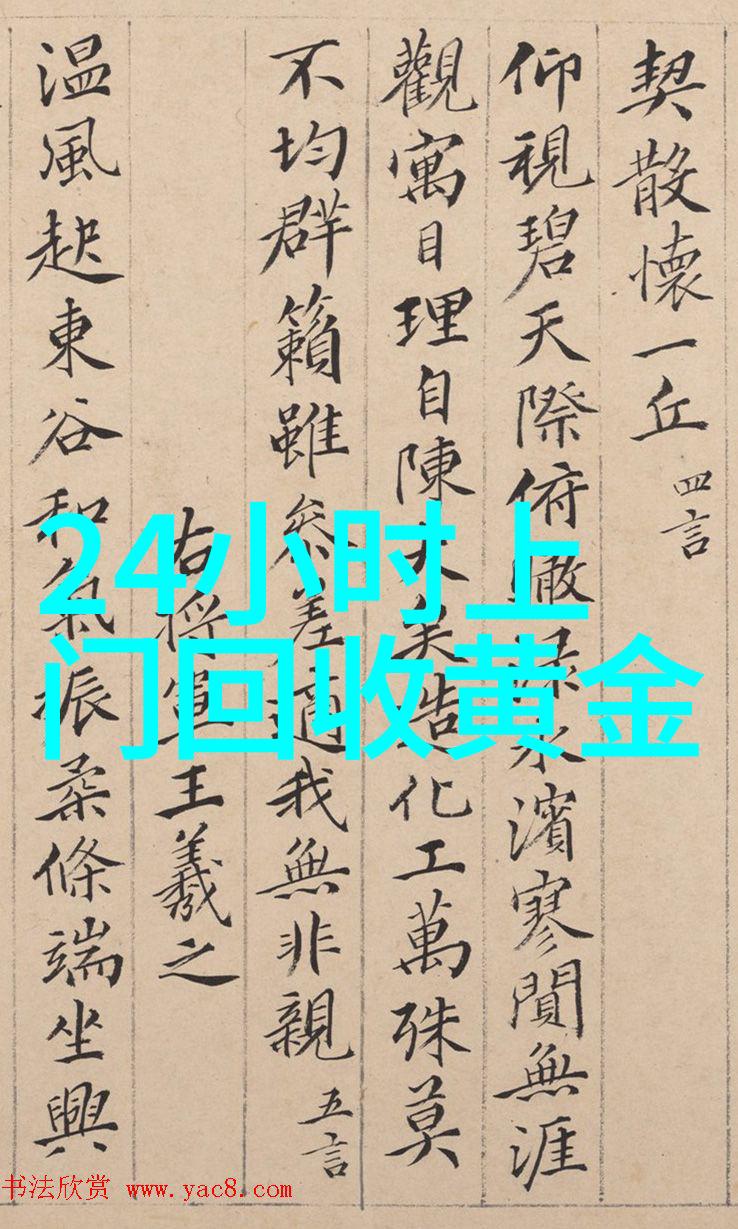 契散懷一丘 四言
仰視碧天際俯瞰淥水濱寥閴無涯
觀寓目理自陳大矣造化工萬殊莫
不均群籟雖參差適我無非親 五言
右将軍王羲之
温風起東谷和氣振柔條端坐興
24小时上
门回收黄金
书法欣赏 www.yac8.com